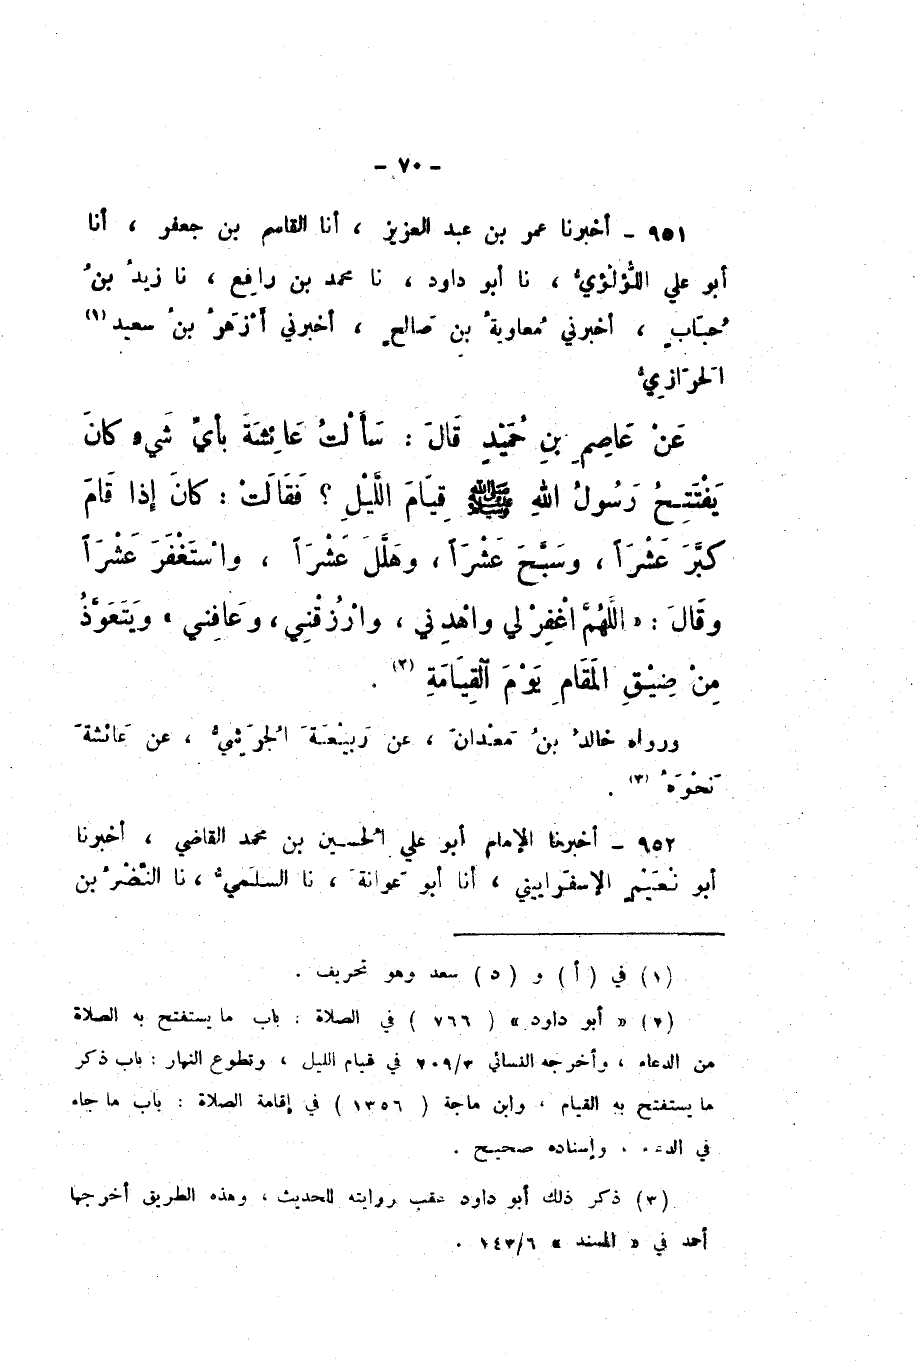 - ٧٠ -
٩٥١ - أخبرنا عمر بن عبد العزيز ، أنا القاسم بن جعفر ، أنا
أبو علي اللُّؤلُؤيُّ ، نا أبو داود ، نا محمد بن رافع ، نا زيدُ بنُ
حُبَابٍ ، أخبرني مُعاوية ُ بن صَالحٍ ، أخبرني أزْهَرُ بنُ سعيد (١)
الحرَازيُّ
عَنْ عَاصِمِ بنِ حُمَيْدٍ قَالَ : سَأَلْتُ عَائِشَةَ بأيِّ شَيءٍ كانَ
يَفْتَتِحُ رَسُولُ اللهِ ﷺ قِيَامَ اللَّيْلِ ؟ فَقَالَتْ : كانَ إذا قَامَ
كبَّرَ عَشْرَاً ، وسَبَّحَ عَشْرَاً ، وهَلَّلَ عَشْرَاً ، واسْتَغْفَرَ عَشْرَاً
وقَالَ : « اللَّهُمَّ اغْفِرْ لي واهْدِني ، وارْزُقْنِي ، وعَافِني » ويَتَعَوَّذُ
مِنْ ضِيْقِ المَقَامِ يَوْمَ ٱلْقِيَامَةِ (٢) .
ورواه خالدُ بنُ مَعْدانَ ، عن رَبيْعَةَ الجُرَشيُّ ، عن عَائشةَ
نَحْوَهُ (٣) .
٩٥٢ - أخبرنا الإمام أبو علي الحُسين بن محمد القاضي ، أخبرنا
أبو نُعَيْمٍ الإسفَراييني ، أنا أبو عَوانةَ ، نا السلَميُّ ، نا النَّضْرُ بن
(١) في ( أ ) و ( ٥ ) سعد وهو تحريف .
(٢) « أبو داود » ( ٧٦٦ ) في الصلاة : باب ما يستفتح به الصلاة
من الدعاء ، وأخرجه النسائي ٢٠٩/٣ في قيام الليل ، وتطوع النهار : باب ذكر
ما يستفتح به القيام ، وابن ماجة ( ١٣٥٦ ) في إقامة الصلاة : باب ما جاء
في الدعاء ، وإسناده صحيح .
(٣) ذكر ذلك أبو داود عقب روايته للحديث ، وهذه الطريق أخرجها
أحمد في « المسند » ١٤٣/٦ .